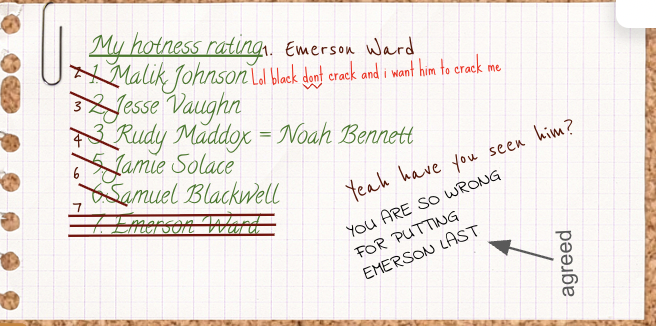 My hotness rating 1. Emerson Ward
2 1. Malik Johnson Lol black dont crack and i want him to crack me
3 2. Jesse Vaughn
4 3 Rudy Maddox = Noah Bennett
6 5. Jamie Solace
7 6. Samuel Blackwell
7. Emerson Ward
Yeah have you seen him?
YOU ARE SO WRONG
FOR PUTTING
EMERSON LAST
agreed